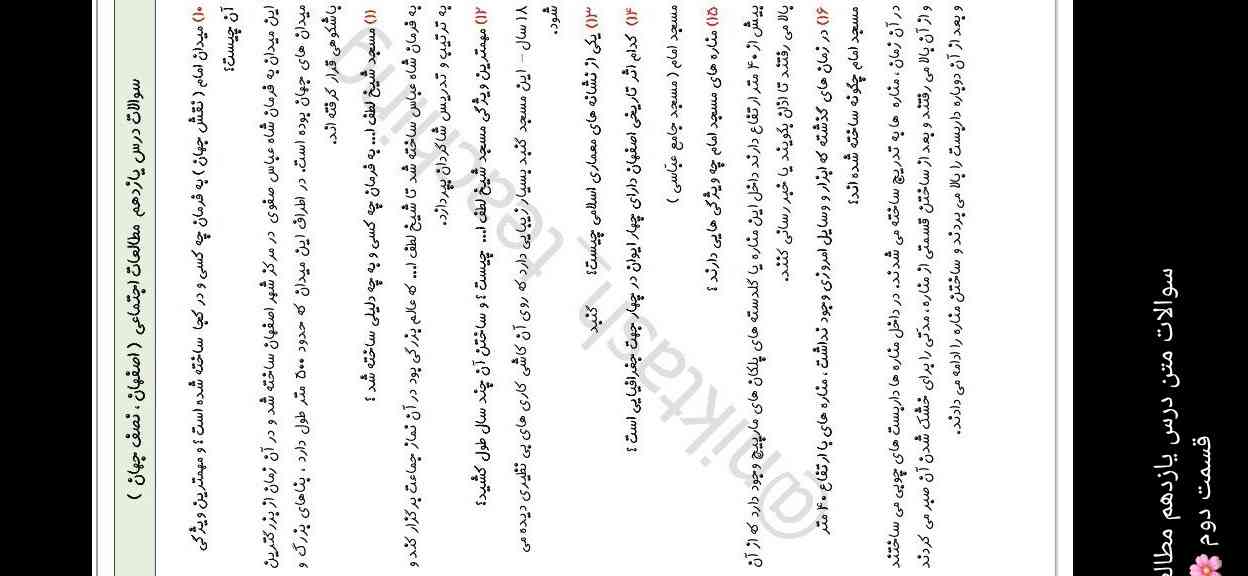 سوالات درس یازدهم مطالعات اجتماعی ( اصفهان ، نصف جهان )
۱۰) میدان امام ( نقش جهان ) به فرمان چه کسی و در کجا ساخته شده است ؟ و مهمترین ویژگی
آن چیست؟
این میدان به فرمان شاه عباس صفوی در مرکز شهر اصفهان ساخته شد و در آن زمان از بزرگترین
میدان های جهان بوده است. در اطراف این میدان که حدود ۵۰۰ متر طول دارد ، بناهای بزرگ و
باشکوهی قرار گرفته اند.
۱۱) مسجد شیخ لطف ا... به فرمان چه کسی و به چه دلیلی ساخته شد ؟
به فرمان شاه عباس ساخته شد تا شیخ لطف ا... که عالم بزرگی بود در آن نماز جماعت برگزار کند و
به ترتیب و تدریس شاگردان بپردازد.
۱۲) مهمترین ویژگی مسجد شیخ لطف ا... چیست ؟ و ساختن آن چند سال طول کشید؟
۱۸ سال – این مسجد گنبد بسیار زیبایی دارد که روی آن کاشی کاری های بی نظیری دیده می
شود.
۱۳) یکی از نشانه های معماری اسلامی چیست؟ گنبد
۱۴) کدام اثر تاریخی اصفهان دارای چهار ایوان در چهار جهت جغرافیایی است ؟
مسجد امام ( مسجد جامع عباسی )
۱۵) مناره های مسجد امام چه ویژگی هایی دارند ؟
بیش از ۴۰ متر ارتفاع دارند داخل این مناره یا گلدسته های پلکان های مارپیچ وجود دارد که از آن
بالا می رفتند تا اذان بگویند یا خبر رسانی کنند.
۱۶) در زمان های گذشته که ابزار و وسایل امروزی وجود نداشت ، مناره های با ارتفاع ۴۰ متر
مسجد امام چگونه ساخته شده اند؟
در آن زمان ، مناره ها به تدریج ساخته می شدند. در داخل مناره ها داربست های چوبی می ساختند
و از آن بالا می رفتند و بعد از ساختن قسمتی از مناره ، مدتی را برای خشک شدن آن صبر می کردند
و بعد از آن دوباره داربست را بالا می بردند و ساختن مناره را ادامه می دادند.
@niktash_teaching
سوالات متن درس یازدهم مطال
قسمت دوم 🌸